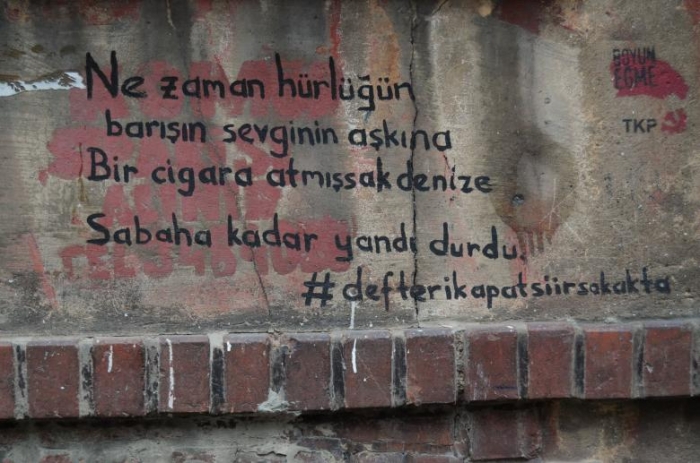 Ne zaman hürlüğün
barışın sevginin aşkına
Bir cigara atmışsak denize
Sabaha kadar yandı durdu.
#defterikapatsiirsokakta
BOYUN
EĞME
TKP